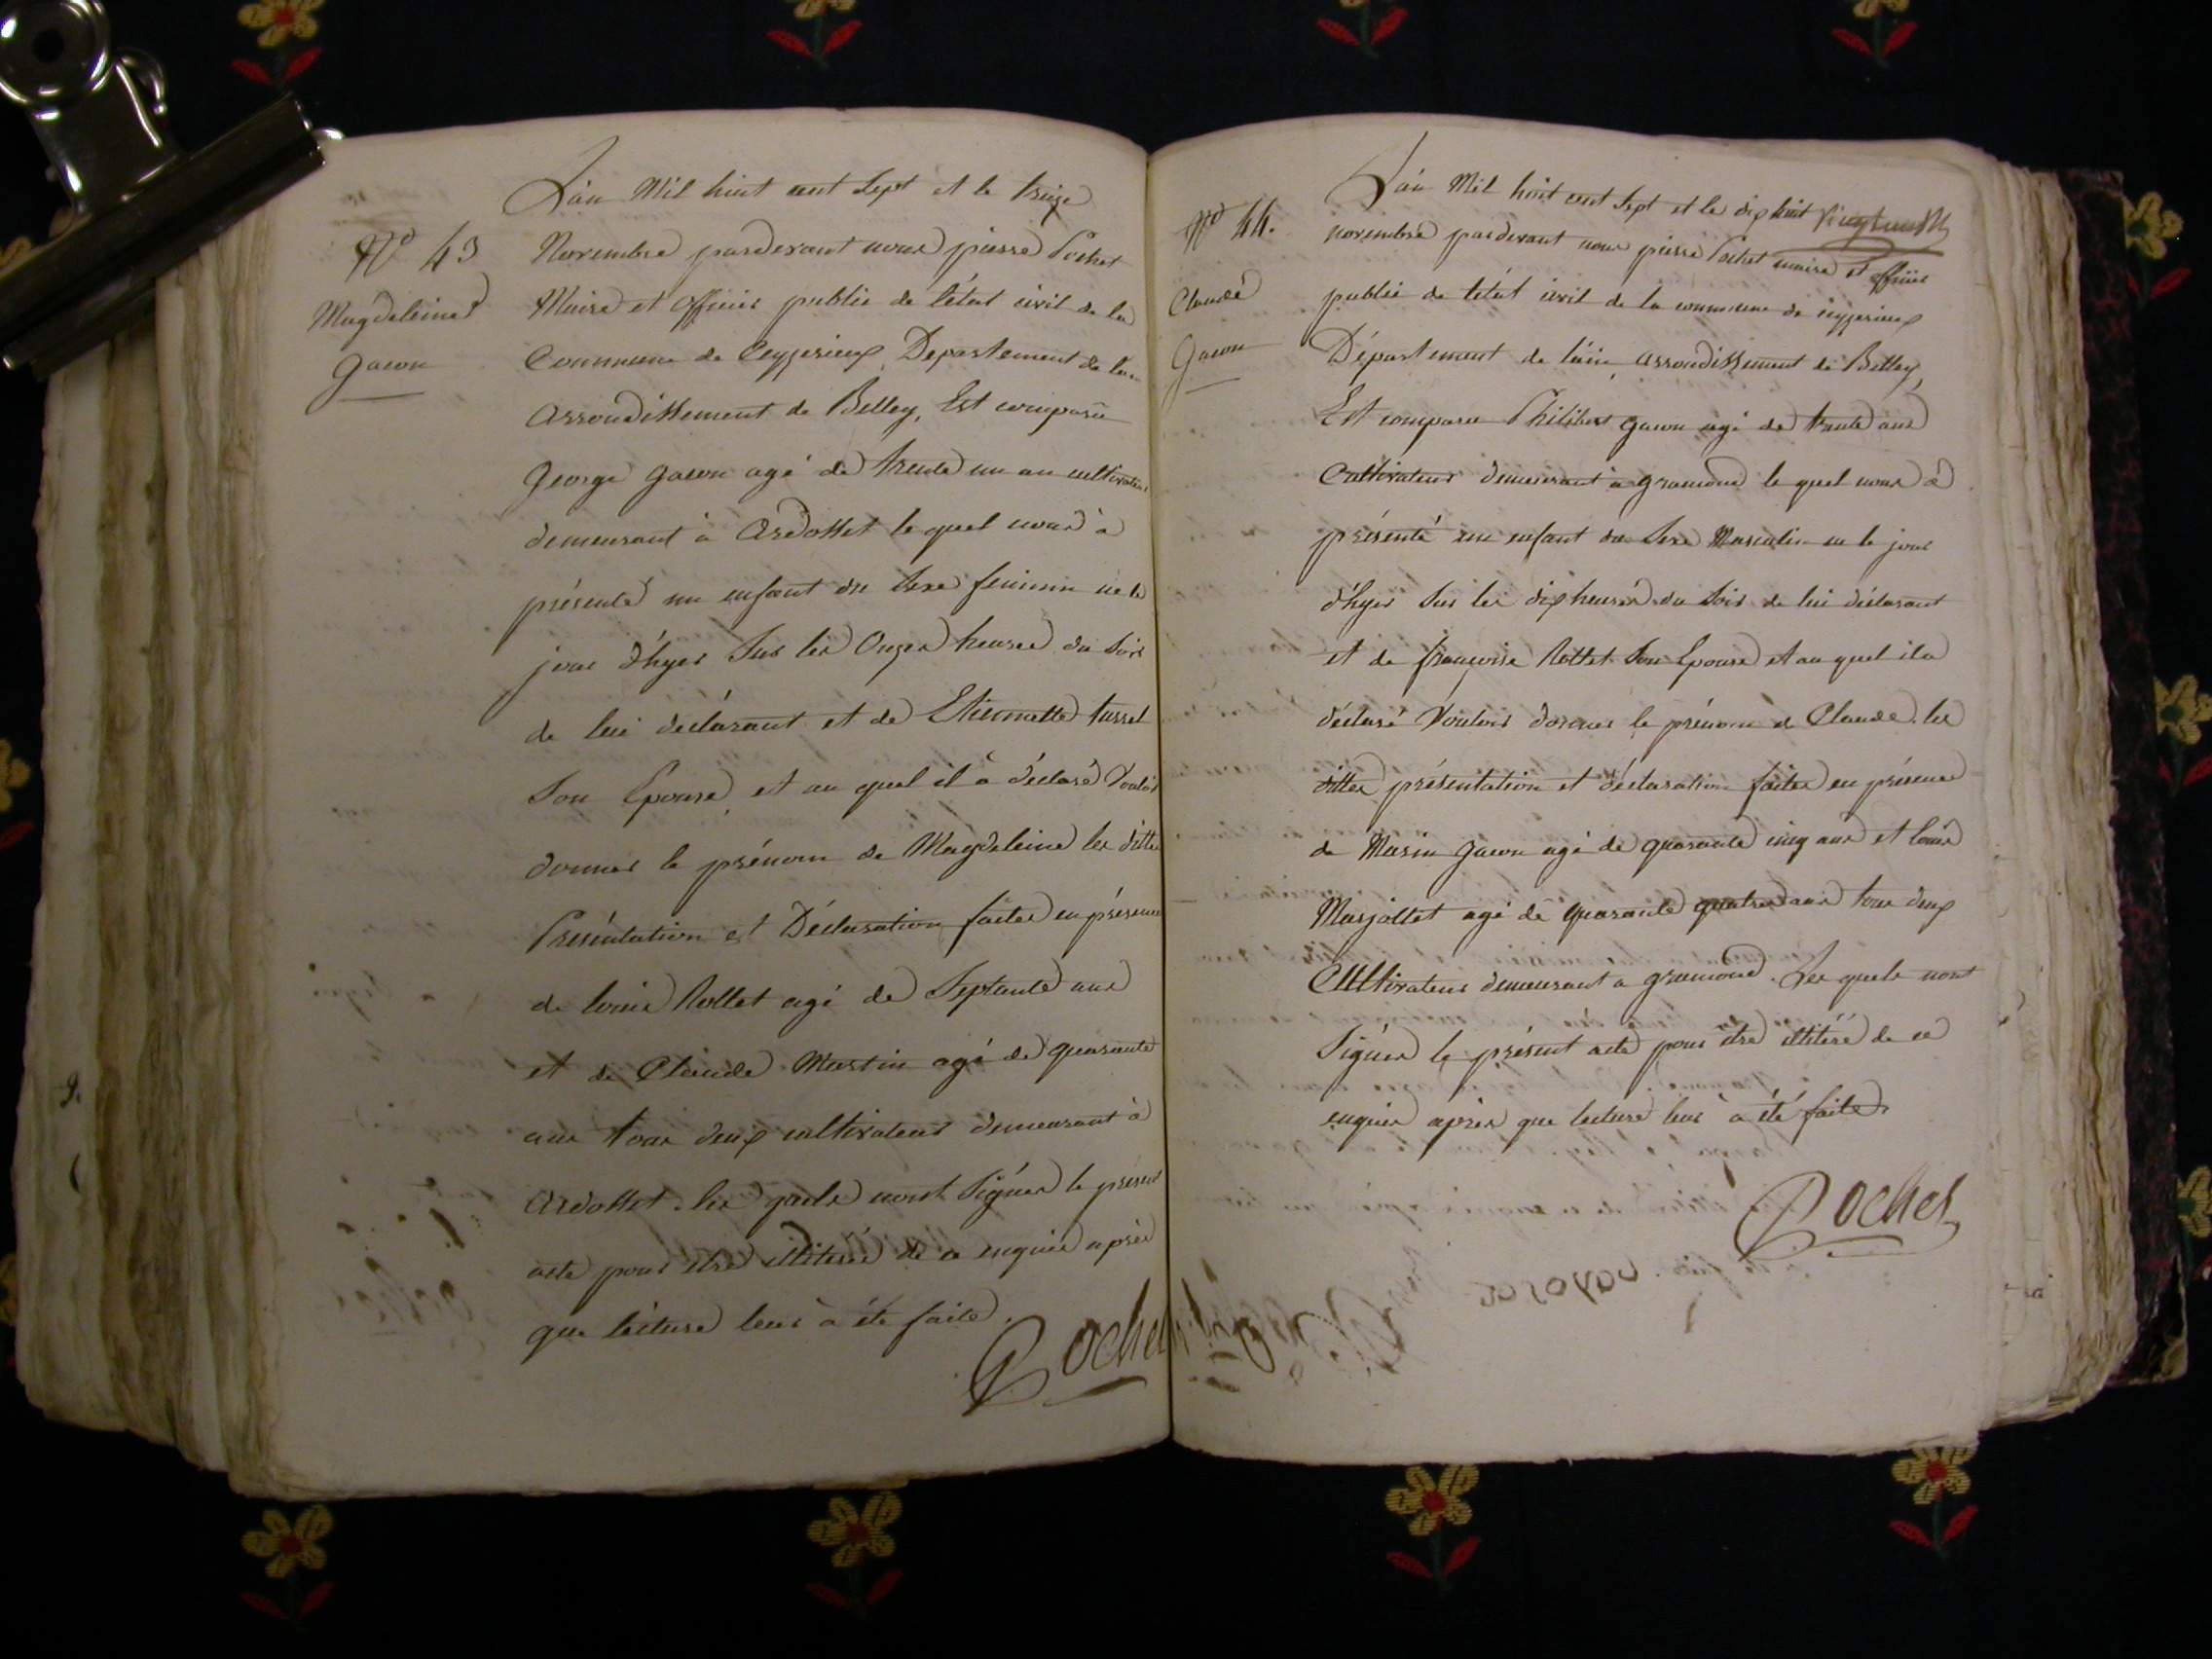 L'an Mil huit cent Sept et le treize
Nº 43
Novembre pardevant nous pierre Pochet
Magdeleine
Maire et officier public de l'état civil de la
Gacon
Commune de Ceyzerieux Departement de l'ain
arrondissement de Belley, Est comparu
George Gacon agé de trente un an cultivateur
demeurant à Ardosset le quel nous à
présenté un enfant du Sexe feminin né le
jour d'hyer Sur les Onzes heures du Soir
de lui déclarant et de Etiennette
Son Epouse, et au quel il à déclaré Vouloir
donner le prénom de Magdeleine les dittes
Presentation et Déclaration faites en présence
de louis Rollet agé de Septante ans
et de Claude Martin agé de quarante
ans tous deux cultivateurs demeurant à
Ardosset. les quels n'ont Signés le présent
acte pour être illitérés de ce enquis après
que lecture leur à été faite.
Pochet
L'an Mil huit cent Sept et le dix huit
Nº 44.
novembre pardevant nous pierre Pochet maire et officier
Claude
public de l'état civil de la commune de ceyzerieux
Gacon
Département de l'ain, arrondissement de Belley,
Est comparu Philibert Gacon agé de trente ans
Cultivateur demeurant à gramond le quel nous à
présenté un enfant du Sexe Masculin né le jour
d'hyer Sur les dix heures du Soir de lui déclarant
et de françoise Rollet Son Epouse et au quel il a
déclaré Vouloir donner le prénom de Claude. les
dittes présentation et déclaration faites en présence
de Marin Gacon agé de quarante cinq ans et louis
Marjollet agé de quarante quatre ans tous deux
Cultivateurs demeurant a gramond. Les quels n'ont
Signés le présent acte pour être illitéré de ce
enquis après que lecture leur à été faite
Pochet